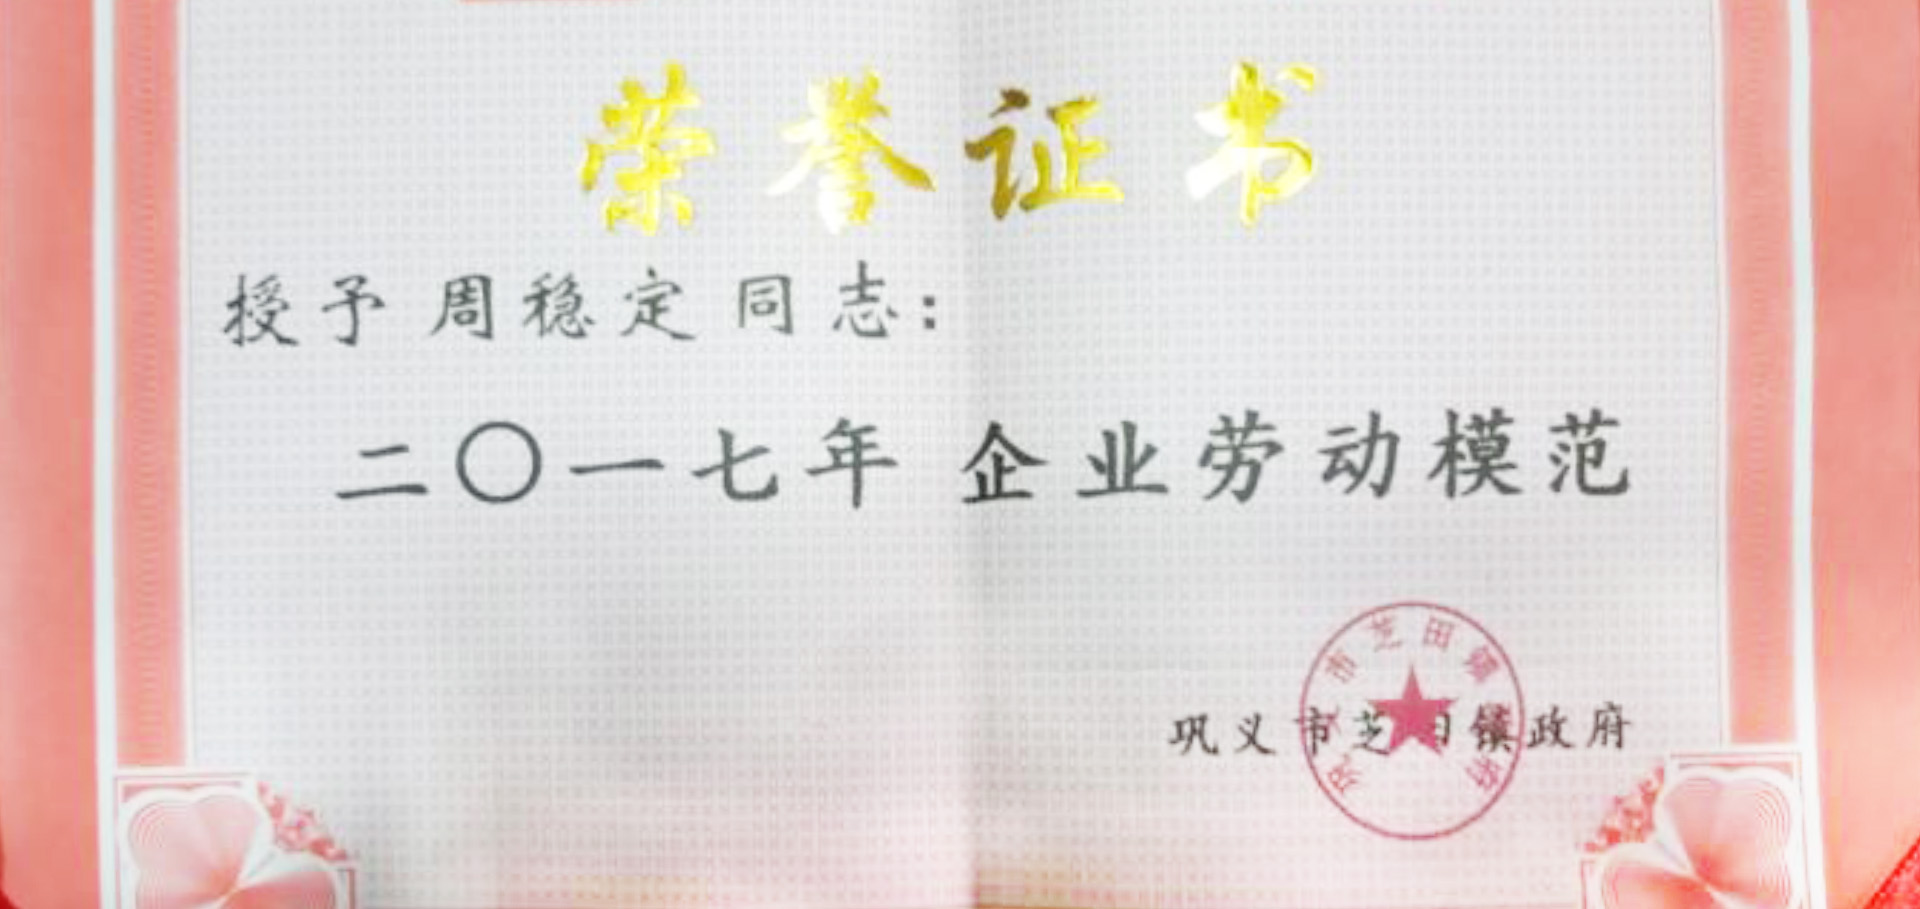 荣誉证书
授予 周稳定 同志：
二〇一七年 企业劳动模范
巩义市芝田镇政府
市芝田镇